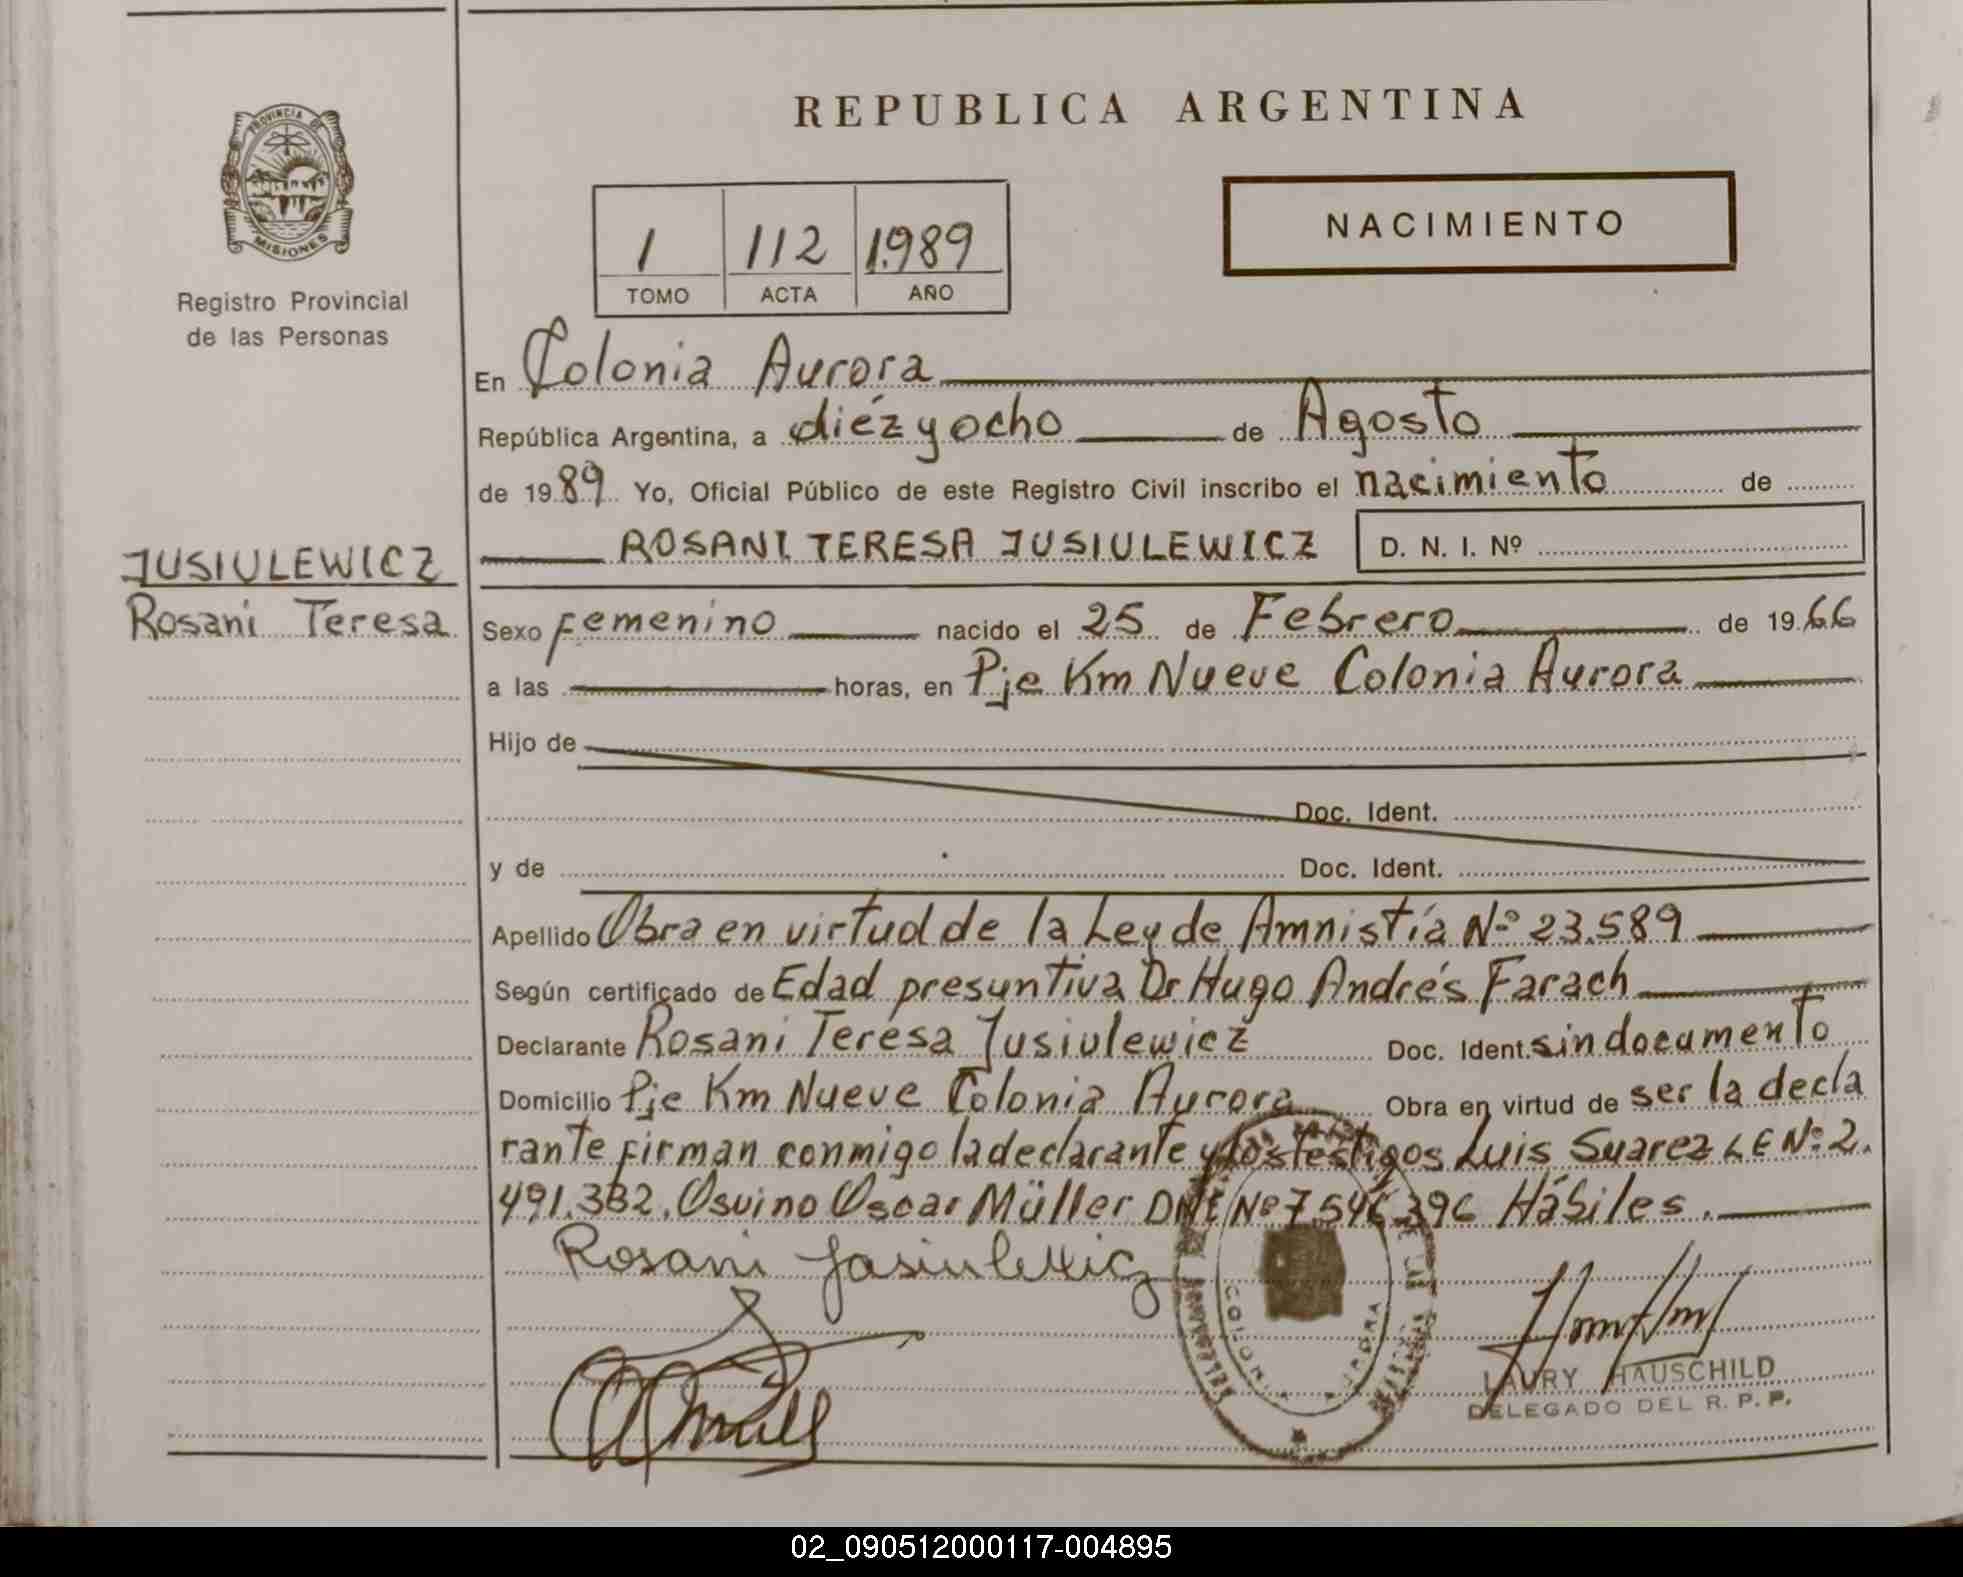 REPUBLICA ARGENTINA
PROVINCIA DE
MISIONES
Registro Provincial
de las Personas
NACIMIENTO
1 112 1.989
TOMO ACTA AÑO
En Colonia Aurora
República Argentina, a diéz y ocho de Agosto
de 1989 Yo, Oficial Público de este Registro Civil inscribo el nacimiento de
JUSIULEWICZ
Rosani Teresa
ROSANI TERESA JUSIULEWICZ D. N. I. Nº
Sexo femenino nacido el 25 de Febrero de 1966
a las horas, en Pje Km Nueve Colonia Aurora
Hijo de
Doc. Ident.
y de Doc. Ident.
Apellido Obra en virtud de la Ley de Amnistía Nº 23.589
Según certificado de Edad presuntiva Dr Hugo Andrés Farach
Declarante Rosani Teresa Jusiulewicz Doc. Ident. sin documento
Domicilio Pje Km Nueve Colonia Aurora Obra en virtud de ser la decla
rante firman conmigo la declarante y los testigos Luis Suarez L E Nº 2.
491.332. Osvino Oscar Müller DNI Nº 7.546.396 Hábiles.
Rosani Jasiulewicz
COLONIA AURORA
LAURY HAUSCHILD
DELEGADO DEL R. P. P.
02_090512000117-004895